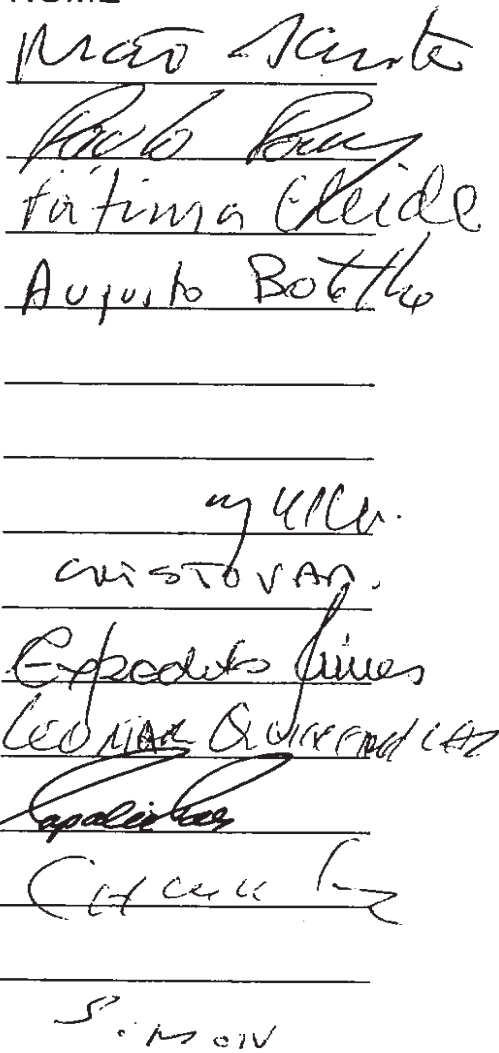 NOME
Mão Santa
Paulo Paim
Fátima Cleide
Augusto Botelho
CRISTOVAM.
Expedito Júnior
LEOMAR QUINTANILHA
Papaléo Paes
SIMON